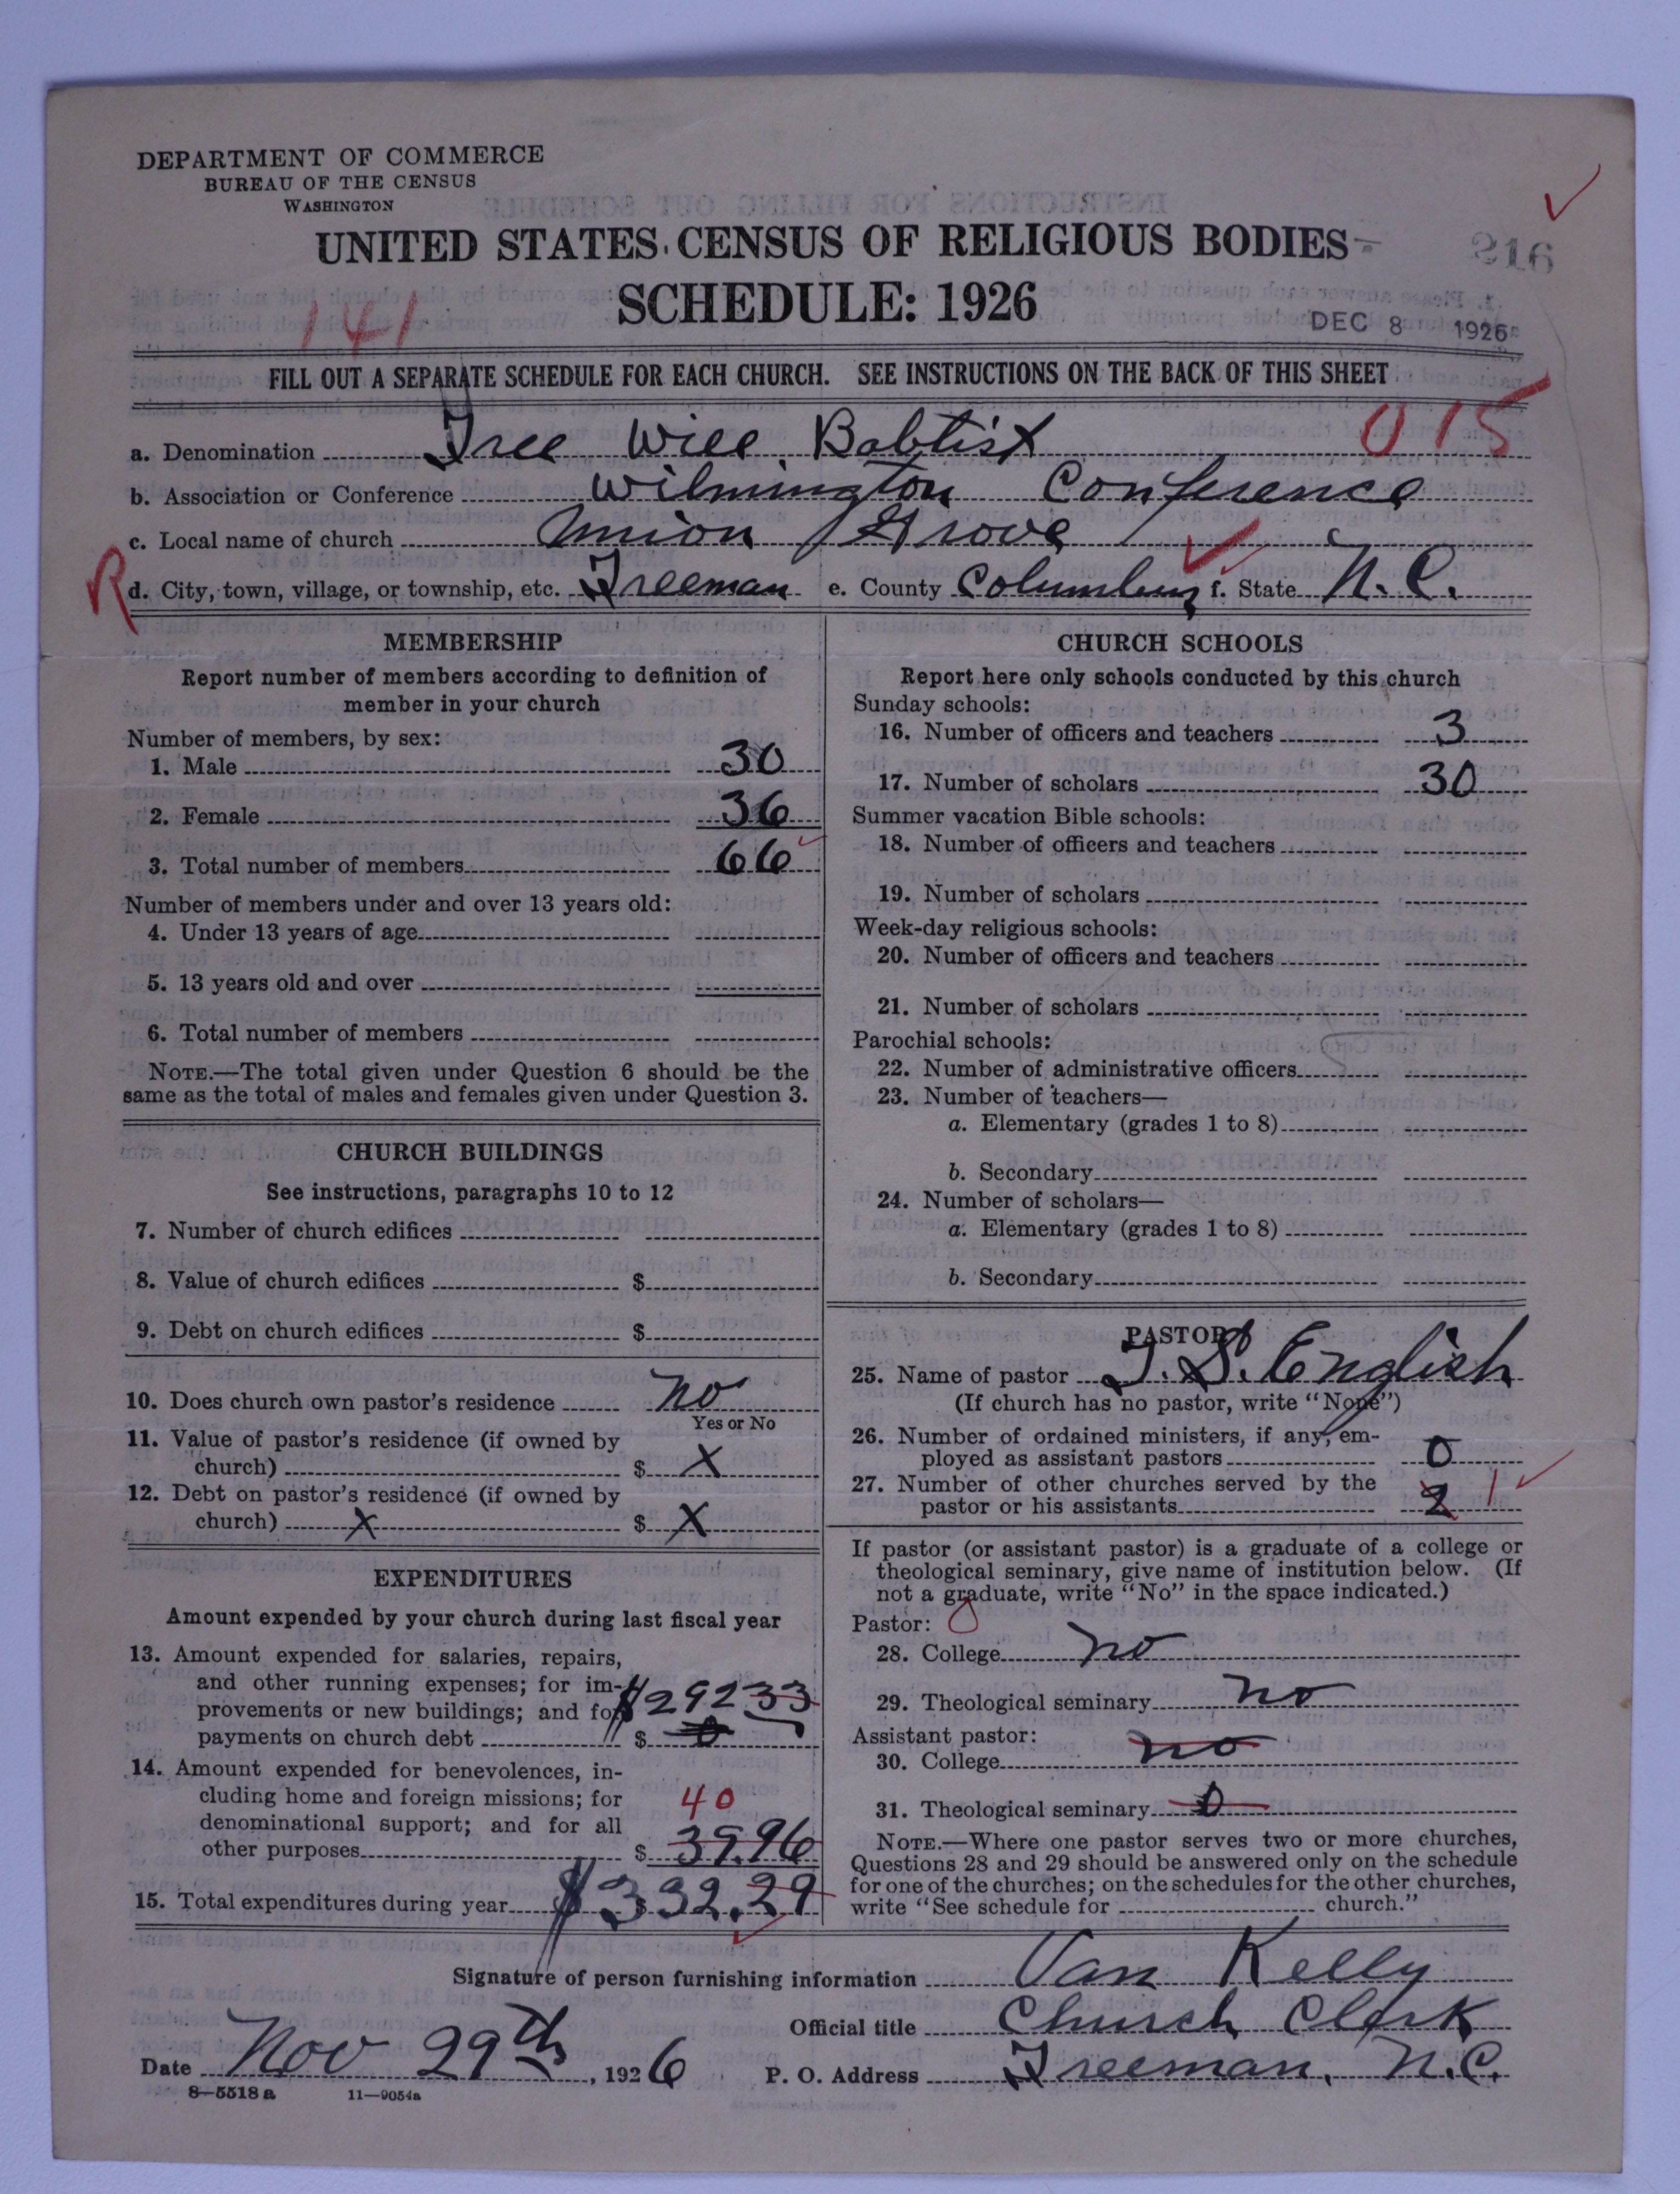 DEPARTMENT OF COMMERCE
BUREAU OF THE CENSUS
WASHINGTON
UNITED STATES CENSUS OF RELIGIOUS BODIES
216
SCHEDULE: 1926
141
DEC 8 1926
FILL OUT A SEPARATE SCHEDULE FOR EACH CHURCH. SEE INSTRUCTIONS ON THE BACK OF THIS SHEET
015
a. Denomination Free Will Babtist
b. Association or Conference Wilmington Conference
c. Local name of church Union Grove
R d. City, town, village, or township, etc. Freeman e. County Columbus f. State N.C.
MEMBERSHIP
Report number of members according to definition of
member in your church
Number of members, by sex:
1. Male 30
2. Female 36
3. Total number of members 66
Number of members under and over 13 years old:
4. Under 13 years of age
5. 13 years old and over
6. Total number of members
NOTE.—The total given under Question 6 should be the
same as the total of males and females given under Question 3.
CHURCH BUILDINGS
See instructions, paragraphs 10 to 12
7. Number of church edifices
8. Value of church edifices $
9. Debt on church edifices $
10. Does church own pastor's residence no
Yes or No
11. Value of pastor's residence (if owned by
church) $ X
12. Debt on pastor's residence (if owned by
church) X $ X
EXPENDITURES
Amount expended by your church during last fiscal year
13. Amount expended for salaries, repairs,
and other running expenses; for im-
provements or new buildings; and for $292 33
payments on church debt $ 0
14. Amount expended for benevolences, in-
cluding home and foreign missions; for 40
denominational support; and for all
other purposes $ 39.96
15. Total expenditures during year $332.29
CHURCH SCHOOLS
Report here only schools conducted by this church
Sunday schools:
16. Number of officers and teachers 3
17. Number of scholars 30
Summer vacation Bible schools:
18. Number of officers and teachers
19. Number of scholars
Week-day religious schools:
20. Number of officers and teachers
21. Number of scholars
Parochial schools:
22. Number of administrative officers
23. Number of teachers—
a. Elementary (grades 1 to 8)
b. Secondary
24. Number of scholars—
a. Elementary (grades 1 to 8)
b. Secondary
PASTOR
25. Name of pastor J. S. English
(If church has no pastor, write "None")
26. Number of ordained ministers, if any, em-
ployed as assistant pastors 0
27. Number of other churches served by the
pastor or his assistants 2 1
If pastor (or assistant pastor) is a graduate of a college or
theological seminary, give name of institution below. (If
not a graduate, write "No" in the space indicated.)
Pastor: 0
28. College no
29. Theological seminary no
Assistant pastor:
30. College no
31. Theological seminary 0
NOTE.—Where one pastor serves two or more churches,
Questions 28 and 29 should be answered only on the schedule
for one of the churches; on the schedules for the other churches,
write "See schedule for church."
Signature of person furnishing information Van Kelly
Official title Church Clerk
Date Nov 29th, 1926 P. O. Address Freeman, N.C.
8—5518a 11—9054a